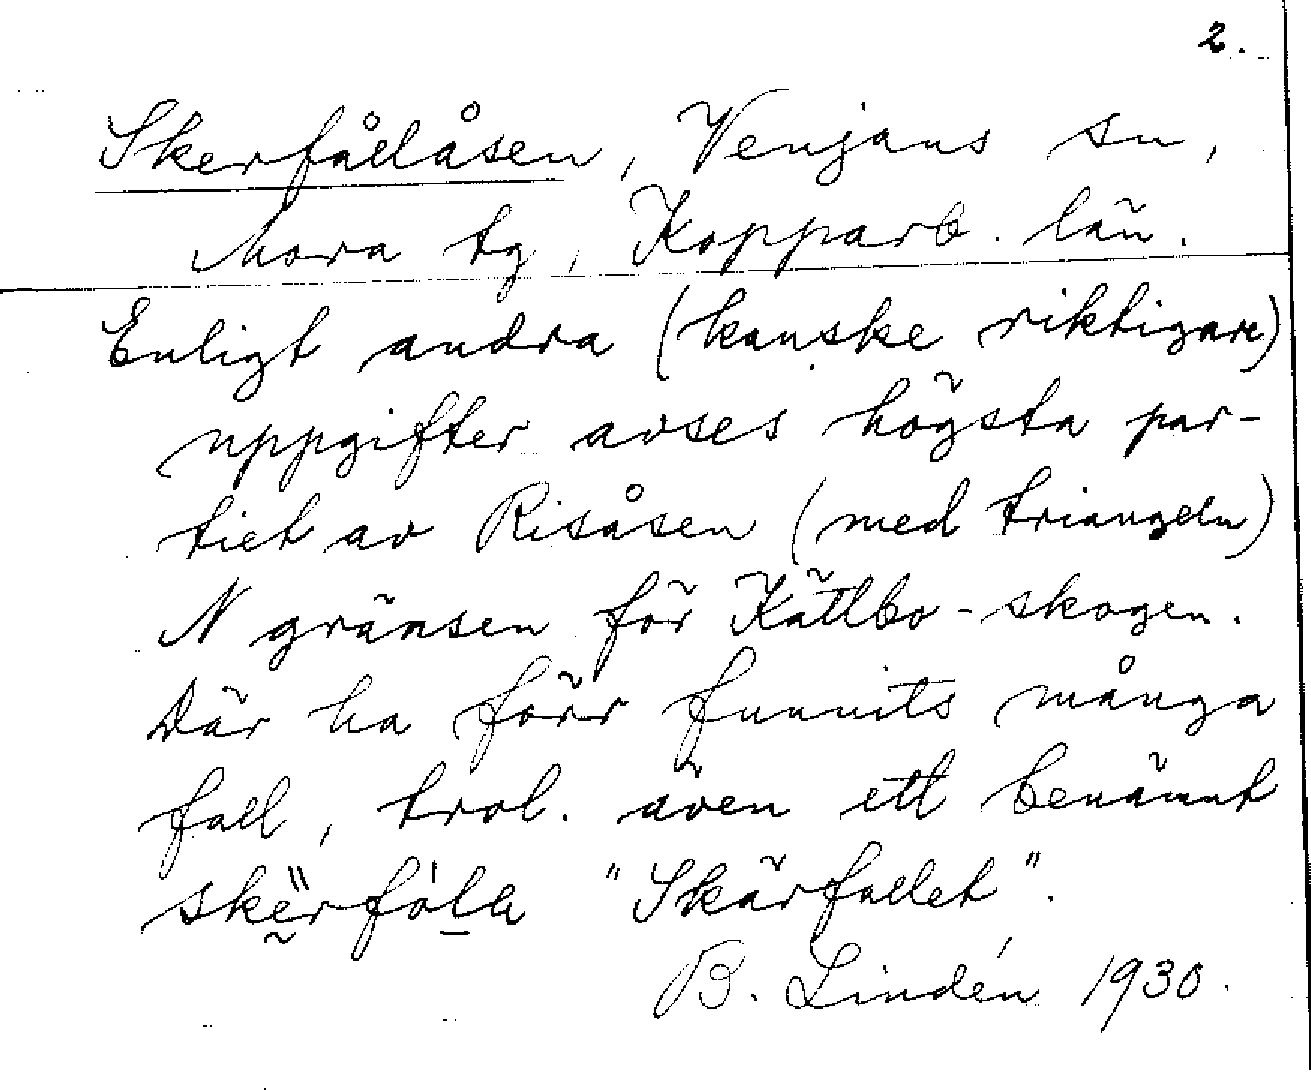 2.
Skerfållåsen, Venjans sn,
Mora tg, Kopparb. län.
Enligt andra (kanske riktigare)
uppgifter avses högsta par-
tiet av Risåsen (med triangeln)
N gränsen för Kättbo-skogen.
Där ha förr funnits många
fall, trol. även ett benämnt
"Skärfallet".
B. Lindén 1930.